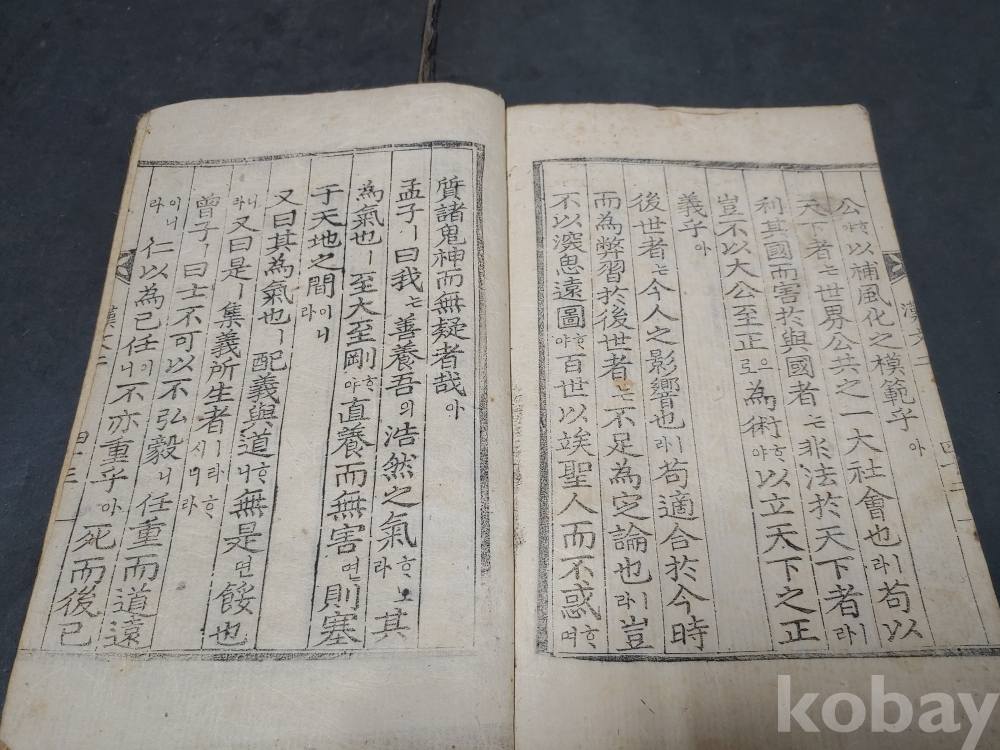 公야ᄒᆞ以補風化之模範乎아
天下者ᄂᆞᆫ世界公共之一大社會也라ㅣ苟以
利其國而害於與國者ᄂᆞᆫ非法於天下者라ㅣ
豈不以大公至正으로為術야ᄒᆞ以立天下之正
義乎아
後世者ᄂᆞᆫ今人之影響也라ㅣ苟適合於今時
而為弊習於後世者ᄂᆞᆫ不足為定論也라ㅣ豈
不以深思遠圖야ᄒᆞ百世以竢聖人而不惑며ᄒᆞ
漢文二
四十二
質諸鬼神而無疑者哉아
孟子ㅣ曰我ᄂᆞᆫ善養吾의浩然之氣라ᄒᆞ노其
為氣也ㅣ至大至剛야ᄒᆞ直養而無害면則塞
于天地之間라이니
又曰其為氣也ㅣ配義與道니ᄒᆞ無是면餒也
라니又曰是ㅣ集義所生者라시며라ᄒᆞ
曾子ㅣ曰士不可以不弘毅니任重而道遠
라이니仁以為己任이니不亦重乎아死而後已
漢文二
四十三
kobay